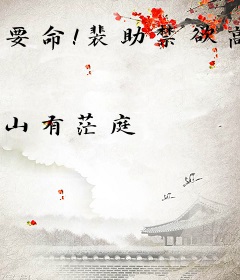 要命!裴助禁欲高
山有茫庭